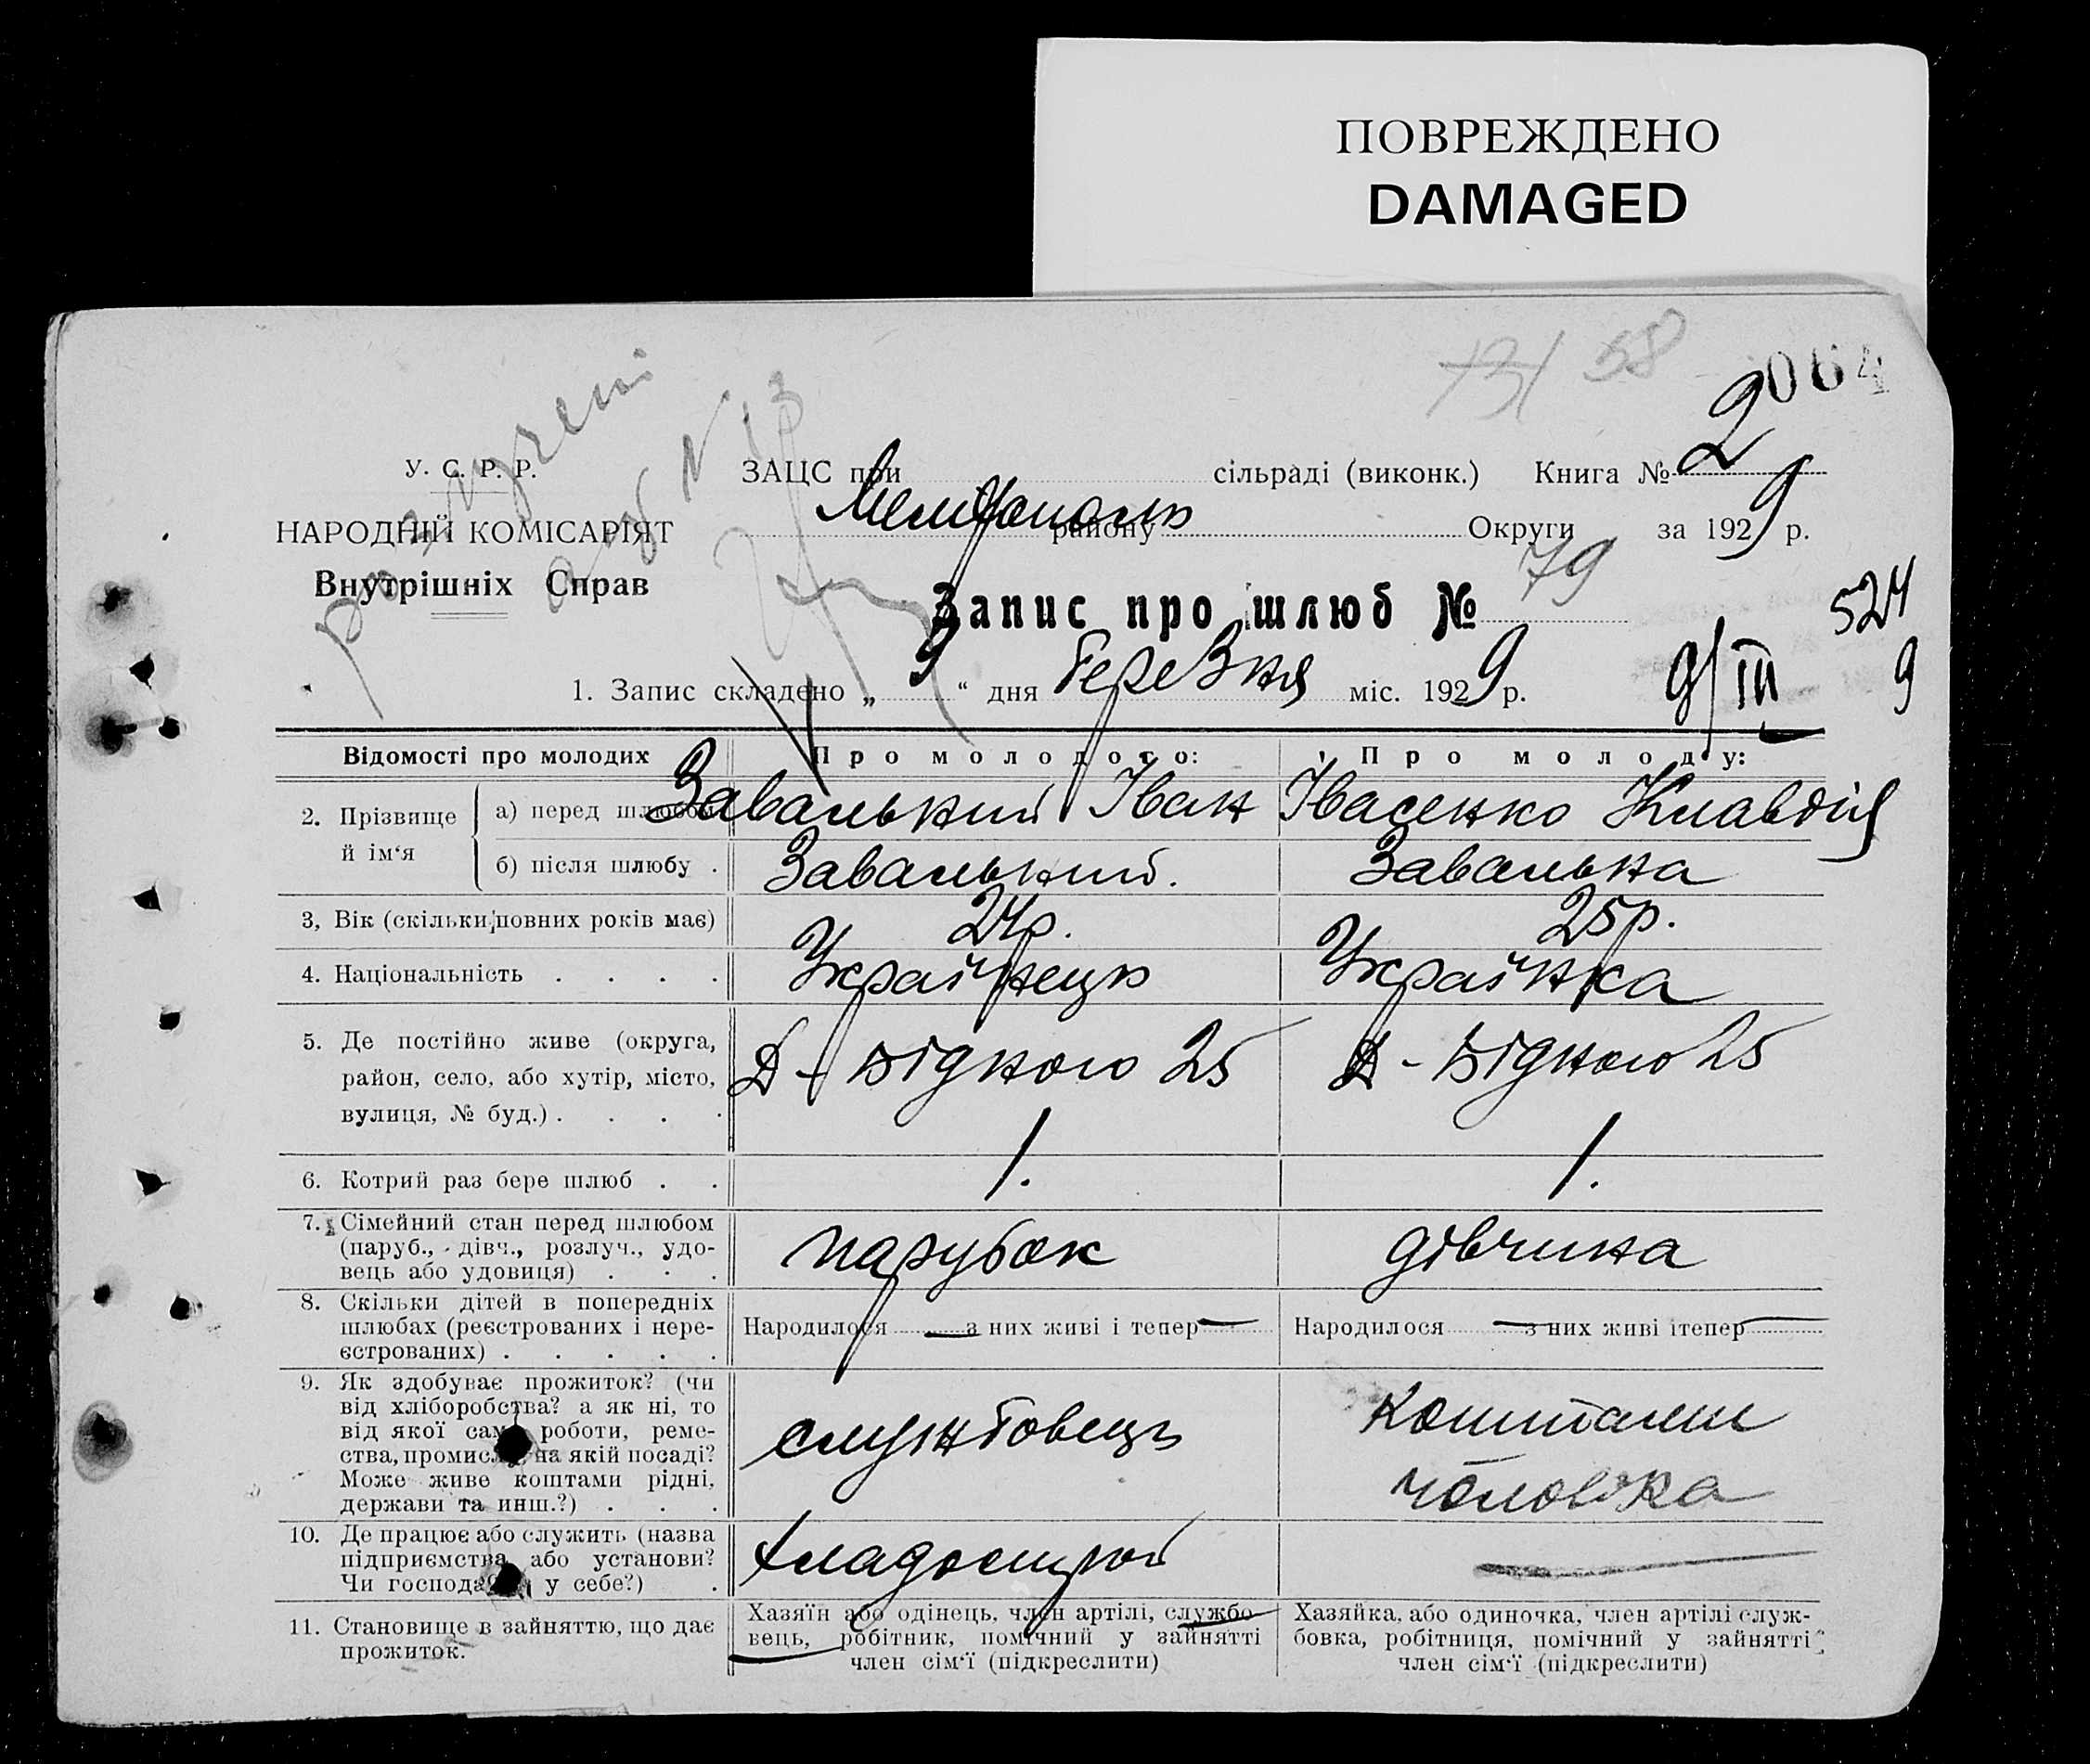 ПОВРЕЖДЕНО
DAMAGED
58
064
У. С. Р. Р.
ЗАЦС при сільраді (виконк.) Книга № 2
НАРОДНІЙ КОМІСАРІЯТ
Мелітополь району Округи за 1929 р.
Внутрішніх Справ
Запис про шлюб № 79
524
9
1. Запис складено „ 9 “ дня березня міс. 1929 р.
9/III
Відомості про молодих Про молодого: Про молоду:
2. Прізвище й ім‘я
а) перед шлюбом Завалький Іван Івасенко Клавдія
б) після шлюбу . Завалький. Завалька
3, Вік (скільки повних років має) 24р. 25р.
4. Національність . . . . Українець Українка
5. Де постійно живе (округа, район, село, або хутір, місто, вулиця, № буд.) . . . .
Д-Бідного 25 Д-Бідного 25
6. Котрий раз бере шлюб . . 1. 1.
7. Сімейний стан перед шлюбом
(паруб., дівч., розлуч., удо-
вець або удовиця) . . .
парубок дівчина
8. Скільки дітей в попередніх
шлюбах (реєстрованих і нере-
єстрованих) . . . . .
Народилося — з них живі і тепер — Народилося — з них живі ітепер —
9. Як здобуває прожиток? (чи
від хліборобства? а як ні, то
від якої сам роботи, реме-
ства, промисл на якій посаді?
Може живе коштами рідні,
держави та инш.?) . . .
службовець коштами
чоловіка
10. Де працює або служить (назва
підприємства або установи?
Чи господа у себе?) .
—
11. Становище в зайняттю, що дає
прожиток.
Хазяїн або одінець, член артілі, службо-
вець, робітник, помічний у зайнятті
член сім‘ї (підкреслити)
Хазяйка, або одиночка, член артілі служ-
бовка, робітниця, помічний у зайнятті
член сім‘ї (підкреслити)